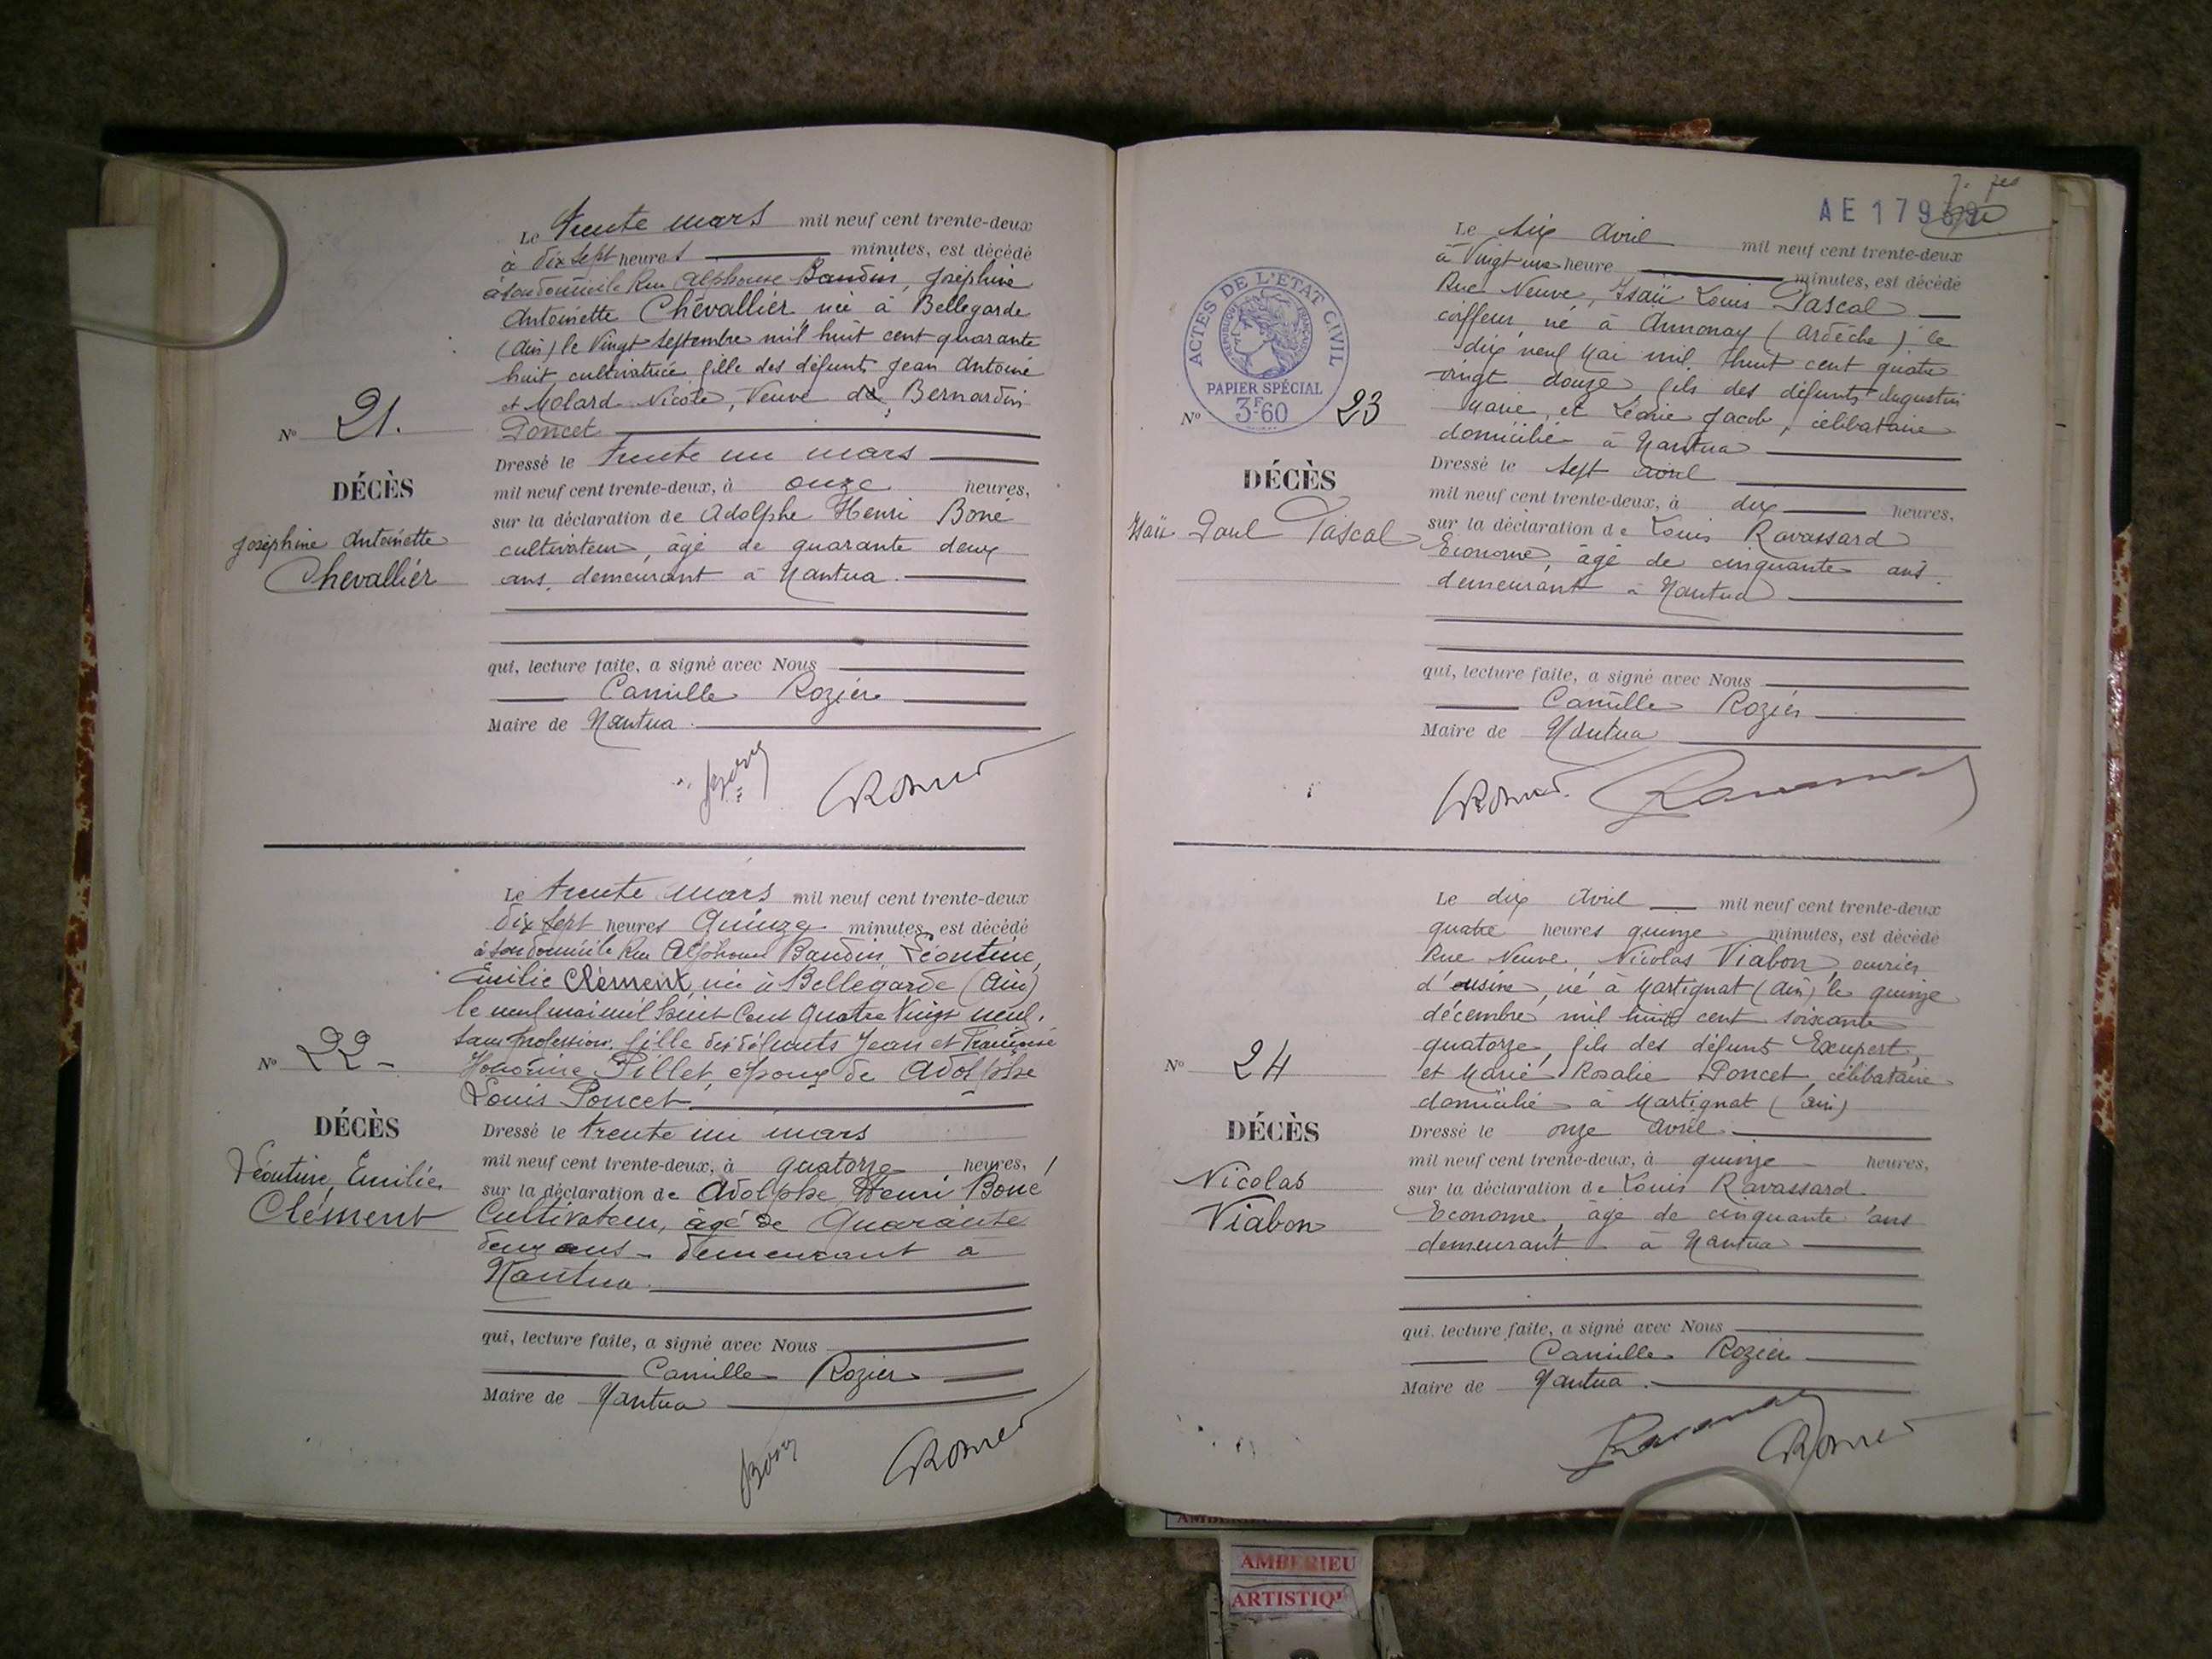 Le trente mars mil neuf cent trente-deux
à dix sept heures minutes, est décédé
à son domicile Rue Alphonse Baudin, Joséphine
Antoinette Chevallier née à Bellegarde
(Ain) le Vingt Septembre mil huit cent quarante
huit, cultivatrice fille des défunts Jean Antoine
et Molard Nicole, Veuve de Bernardin
Poncet
Nº 21.
DÉCÈS
Joséphine Antoinette
Chevallier
Dressé le trente un mars
mil neuf cent trente-deux, à onze heures,
sur la déclaration de Adolphe Henri Boné
cultivateur, âgé de quarante deux
ans, demeurant à Nantua.
qui, lecture faite, a signé avec Nous
Camille Rozier
Maire de Nantua.
Le trente mars mil neuf cent trente-deux
dix sept heures Quinze minutes, est décédé
à son domicile Rue Alphonse Baudin Léontine,
Emilie Clément, née à Bellegarde (Ain)
le neuf mai mil huit Cent Quatre Vingt neuf.
sans profession. fille des défunts Jean et Françoise
Honorine Pillet, épouse de Adolphe
Louis Poncet
Nº 22-
DÉCÈS
Léontine, Emilie
Clément
Dressé le trente un mars
mil neuf cent trente-deux, à quatorze heures,
sur la déclaration de Adolphe Henri Boné
Cultivateur, âgé de Quarante
deux ans - demeurant à
Nantua.
qui, lecture faite, a signé avec Nous
Camille Rozier
Maire de Nantua
AE 179
ACTES DE L'ETAT CIVIL
REPUBLIQUE FRANÇAISE
PAPIER SPÉCIAL
3F.60
Le six Avril mil neuf cent trente-deux
à Vingt une heure minutes, est décédé
Rue Neuve, Isaü Louis Pascal
coiffeur, né à Annonay (Ardèche) le
dix neuf Mai mil huit cent quatre
vingt douze, fils des défunts Augustin
Marie, et Léonie Jacob, célibataire
domicilié à Nantua
Nº 23
DÉCÈS
Isaü Paul Pascal
Dressé le sept avril
mil neuf cent trente-deux, à dix heures,
sur la déclaration de Louis Ravassard
Econome, âgé de cinquante ans.
demeurant à Nantua
qui, lecture faite, a signé avec Nous
Camille Rozier
Maire de Nantua
Le dix Avril mil neuf cent trente-deux
quatre heures quinze minutes, est décédé
Rue Neuve, Nicolas Viabon, ouvrier
d'usine, né à Martignat (Ain) le quinze
décembre mil huit cent soixante
quatorze, fils des défunts Exupert,
et Marie Rosalie Poncet, célibataire
domicilié à Martignat (Ain)
Nº 24
DÉCÈS
Nicolas
Viabon
Dressé le onze avril
mil neuf cent trente-deux, à quinze heures,
sur la déclaration de Louis Ravassard
Econome, âgé de cinquante ans
demeurant à Nantua
qui, lecture faite, a signé avec Nous
Camille Rozier
Maire de Nantua.
AMBERIEU
ARTISTIQ